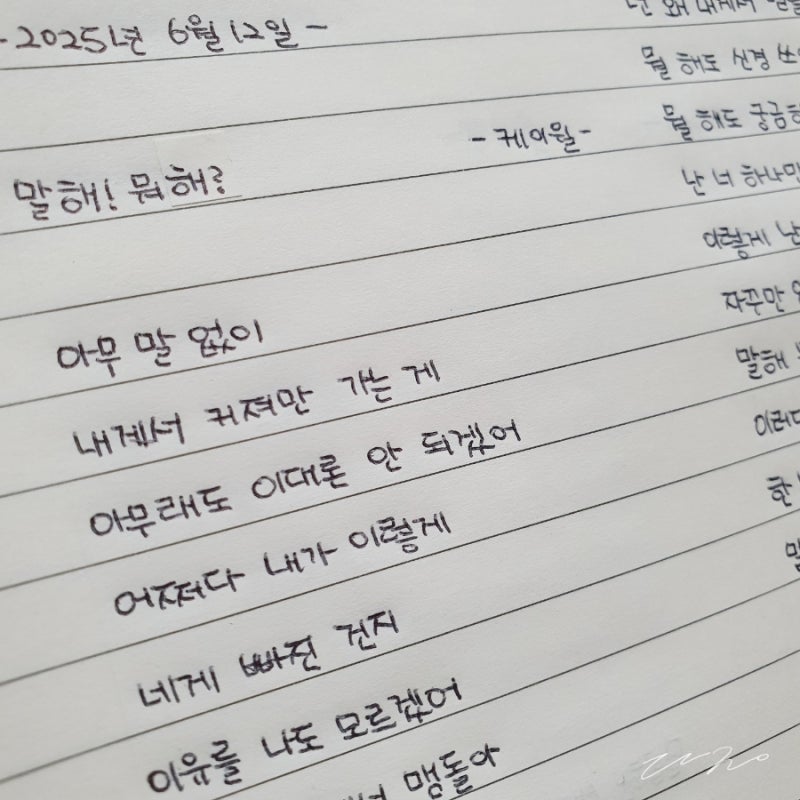 -2025년 6월 12일-
말해! 뭐해?
-케이윌-
아무 말 없이
내게서 커져만 가는 게
아무래도 이대론 안 되겠어
어쩌다 내가 이렇게
네게 빠진 건지
이유를 나도 모르겠어
맴돌아
난 왜 내게서
뭘 해도 신경
뭘 해도
난 너
이렇게 난
자꾸만
말해
한